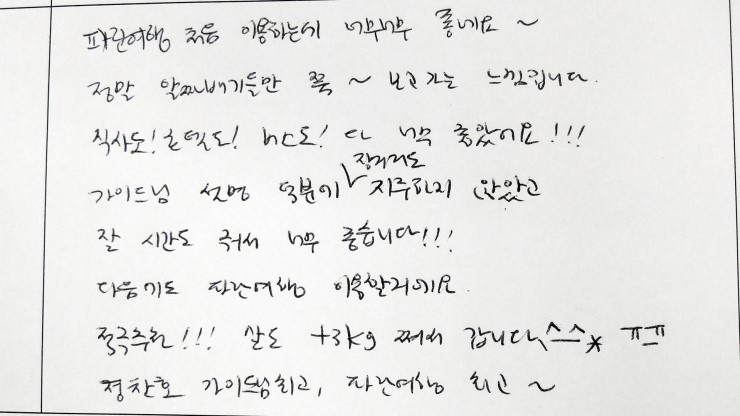 파란여행 처음 이용하는데 너무너무 좋네요 ~
정말 알짜배기들만 쭉 ~ 보고 가는 느낌입니다.
식사도! 호텔도! 버스도! 다 너무 좋았어요!!!
가이드님 설명 덕분에 장거리도 지루하지 않았고
잘 시간도 줘서 너무 좋습니다!!!
다음에도 파란여행 이용할거에요.
적극추천!!! 살도 +3kg 쪄서 갑니다^^* ㅠㅠ
정찬호 가이드님 최고, 파란여행 최고 ~